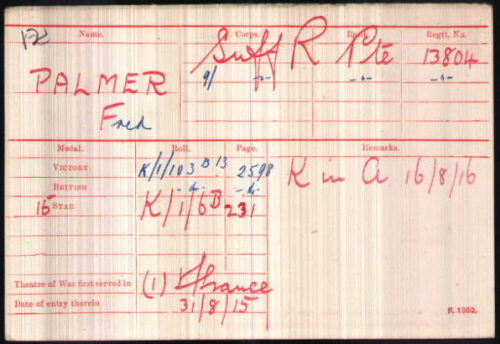 Name. Corps. Rank. Regtl. No.
PALMER Suff R Pte 13804
9/ -"- -"- -"-
Fred
Medal. Roll. Page. Remarks.
VICTORY K/1/103 B 13 2598 K in A 16/8/16
BRITISH -"- -"-
15 STAR K/1/6B 231
Theatre of War first served in (1) France
Date of entry therein 31/8/15
K. 1380.